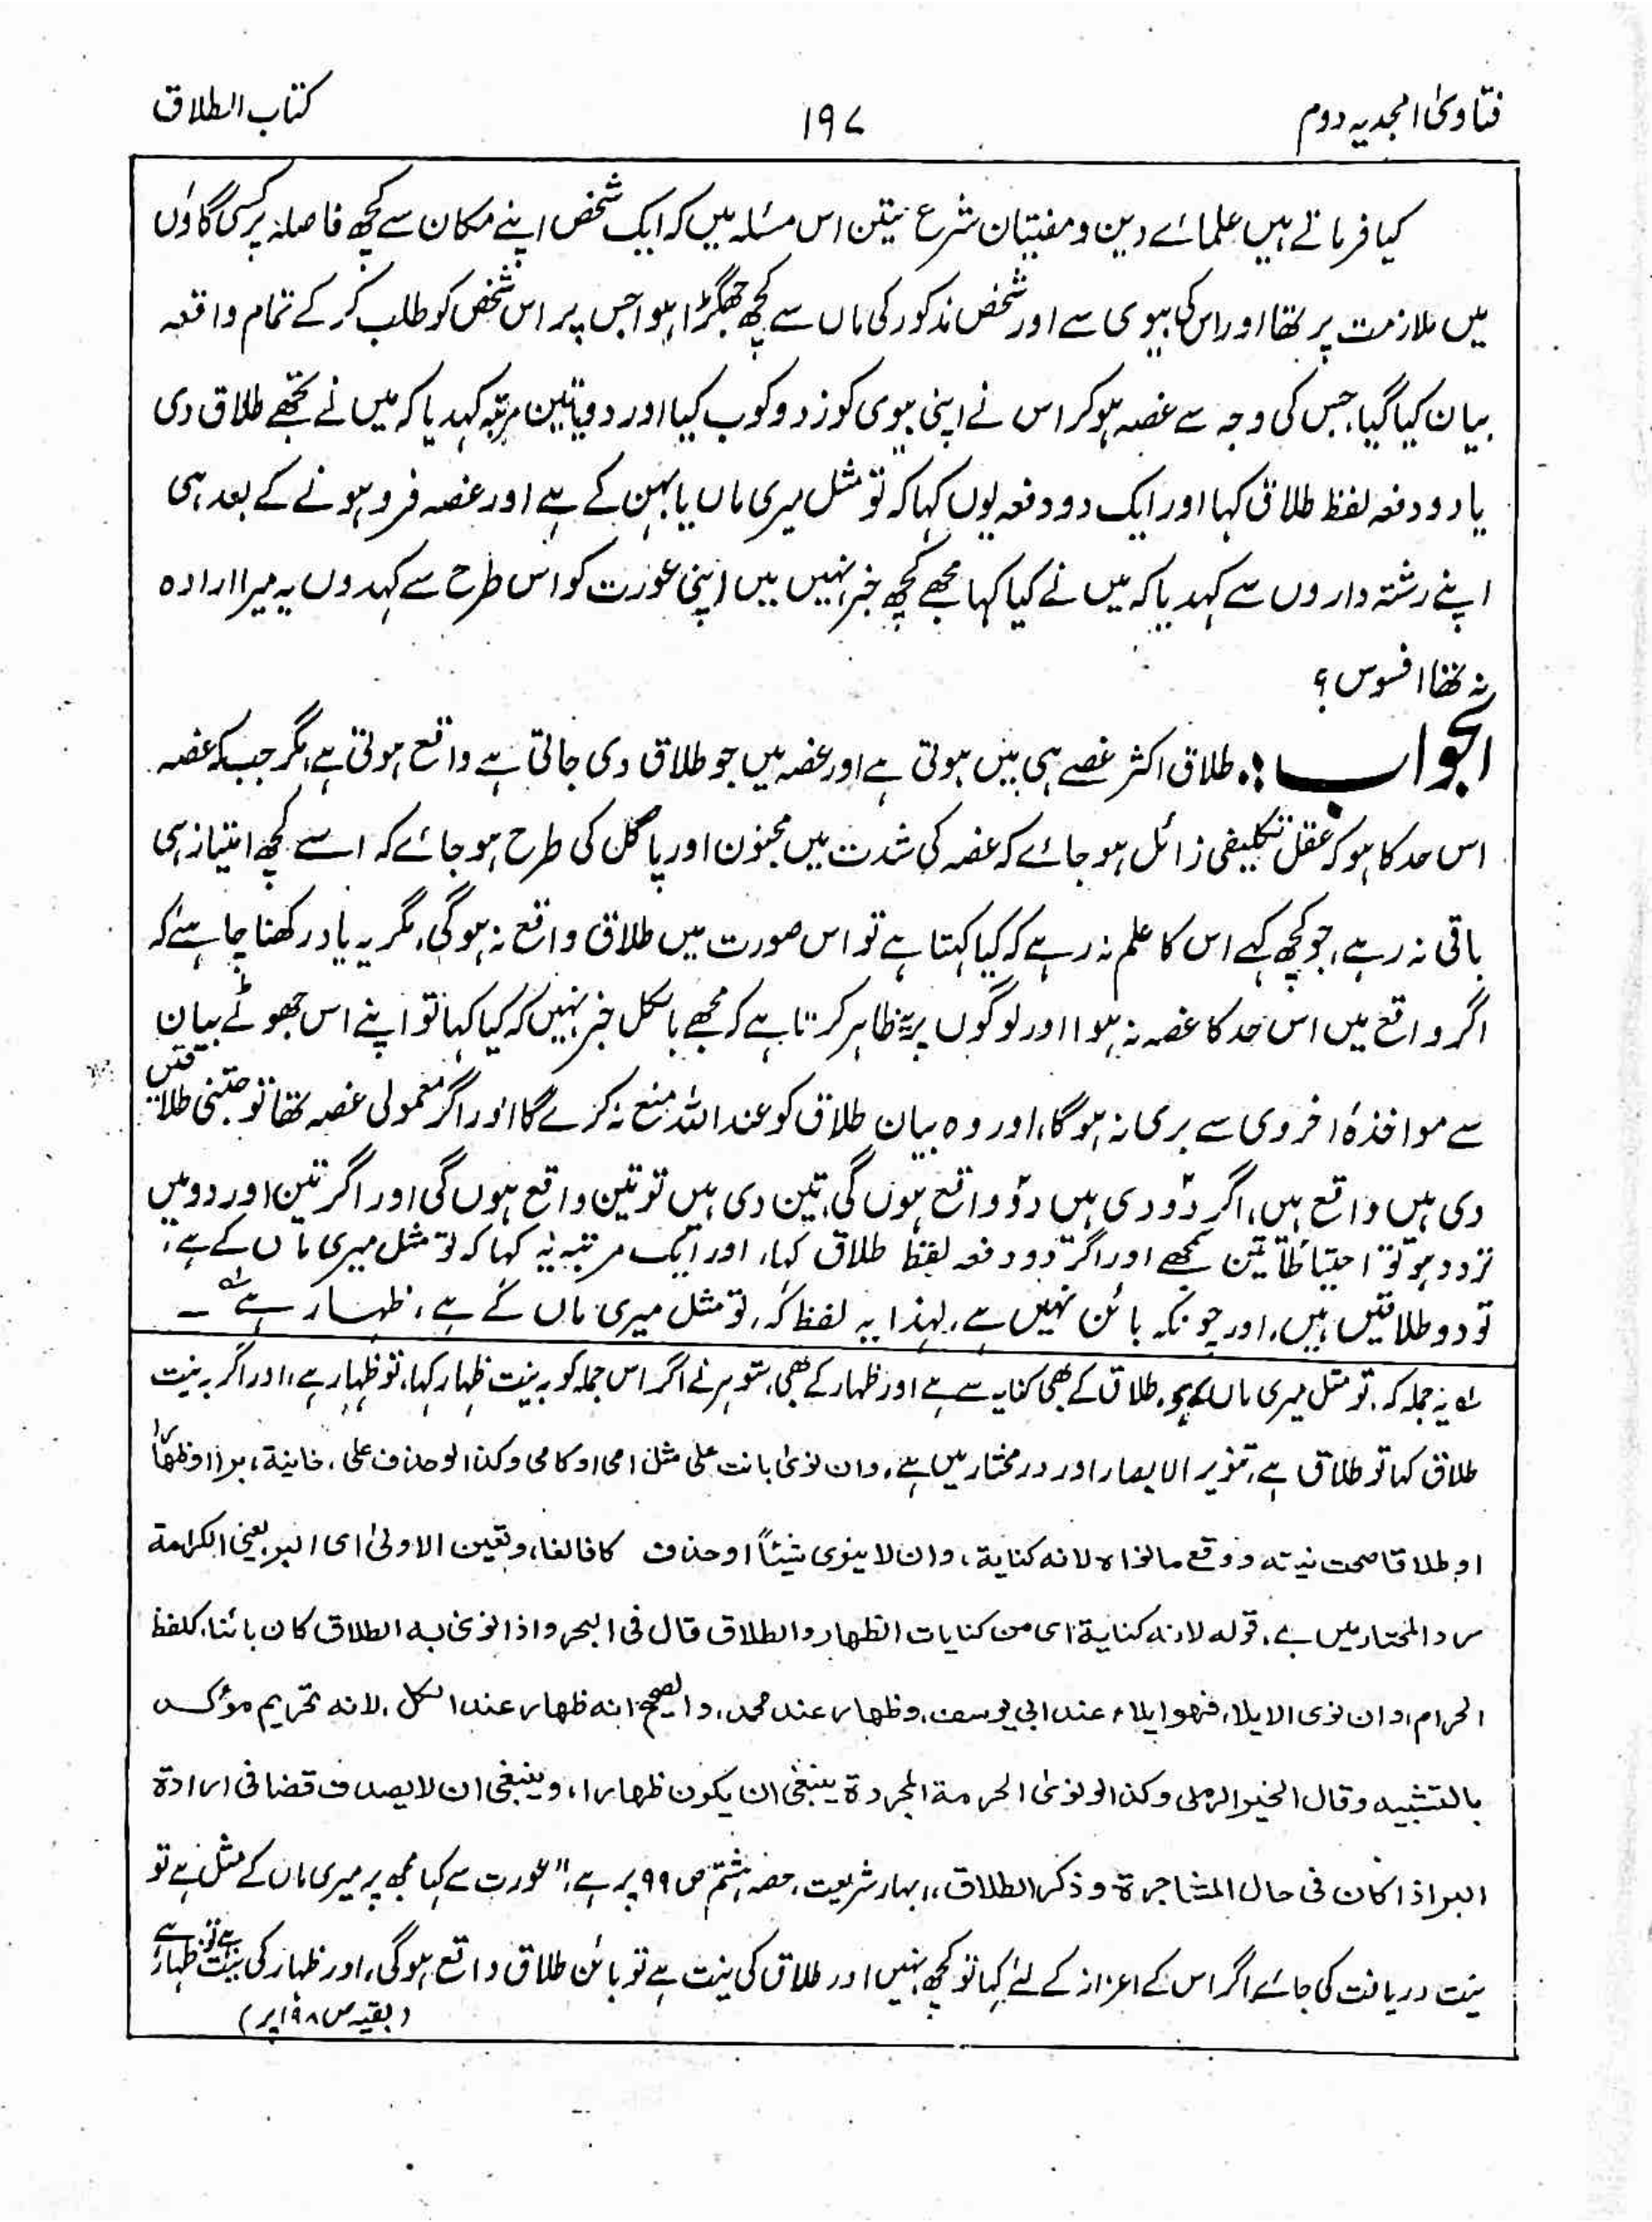 فتاویٰ امجدیہ دوم
۱۹۷
کتاب الطلاق
کیا فرماتے ہیں علمائے دین و مفتیان شرع متین اس مسئلہ میں کہ ایک شخص اپنے مکان سے کچھ فاصلہ پر کسی گاؤں
میں ملازمت پر تھا اور اس کی بیوی سے اور شخص مذکور کی ماں سے کچھ جھگڑا ہوا جس پر اس شخص کو طلب کر کے تمام واقعہ
بیان کیا گیا، جس کی وجہ سے غصہ ہو کر اس نے اپنی بیوی کو زد و کوب کیا اور دو یا تین مرتبہ کہدیا کہ میں نے تجھے طلاق دی
یا دو دفعہ لفظ طلاق کہا اور ایک دو دفعہ یوں کہا کہ تو مثل میری ماں یا بہن کے ہے اور غصہ فرو ہونے کے بعد ہی
اپنے رشتہ داروں سے کہدیا کہ میں نے کیا کہا مجھے کچھ خبر نہیں میں اپنی عورت کو اس طرح سے کہدوں یہ میرا ارادہ
نہ تھا افسوس؟
الجواب :۔ طلاق اکثر غصے ہی میں ہوتی ہے اور غصہ میں جو طلاق دی جاتی ہے واقع ہوتی ہے، مگر جب کہ غصہ
اس حد کا ہو کہ عقل تکلیفی زائل ہو جائے کہ غصہ کی شدت میں مجنون اور پاگل کی طرح ہو جائے کہ اسے کچھ امتیاز ہی
باقی نہ رہے، جو کچھ کہے اس کا علم نہ رہے کہ کیا کہتا ہے تو اس صورت میں طلاق واقع نہ ہوگی، مگر یہ یاد رکھنا چاہئے کہ
اگر واقع میں اس حد کا غصہ نہ ہوا اور لوگوں پر یہ ظاہر کرتا ہے کہ مجھے بالکل خبر نہیں کہ کیا کہا تو اپنے اس جھوٹے بیان
سے مواخذۂ اخروی سے بری نہ ہوگا، اور وہ بیان طلاق کو عند اللہ منع نہ کرے گا اور اگر معمولی غصہ تھا تو جتنی طلاقیں
دی ہیں واقع ہیں، اگر دو دی ہیں دو واقع ہوں گی، تین دی ہیں تو تین واقع ہوں گی اور اگر تین اور دو میں
تردد ہو تو احتیاطاً تین سمجھے اور اگر دو دفعہ لفظ طلاق کہا، اور ایک مرتبہ یہ کہا کہ تو مثل میری ماں کے ہے،
تو دو طلاقیں ہیں، اور چونکہ بائن نہیں ہے، لہذا یہ لفظ کہ، تو مثل میری ماں کے ہے، ظہار ہے ؎۱ ۔
؎۱ یہ جملہ کہ، تو مثل میری ماں کے ہے، طلاق کے بھی کنایہ سے ہے اور ظہار کے بھی، شوہر نے اگر اس جملہ کو بہ نیت ظہار کہا، تو ظہار ہے، اور اگر بہ نیت
طلاق کہا تو طلاق ہے، تنویر الابصار اور در مختار میں ہے، وان نویٰ بانت علی مثل امی او کامی وکذا لو حذف علی، خانیة، برا او ظهارا
او طلاقا صحت نیته ووقع ما نواه لانه کنایة، وان لا ینوی شیئاً او حذف الکاف لغا، وتعین الاولیٰ ای البر یعنی الکرامة
رد المحتار میں ہے، قوله لانه کنایة ای من کنایات الظهار والطلاق قال فی البحر واذا نویٰ به الطلاق کان بائنا، کلفظ
الحرام، وان نوی الایلاء فهو ایلاء عند ابی یوسف، وظهار عند محمد، والصحیح انه ظهار عند الکل، لانه تحریم مؤکد
بالتشبیه وقال الخیر الرملی وکذا لو نویٰ الحرمة المجردة ینبغی ان یکون ظهارا، وینبغی ان لا یصدق قضا فی ارادة
البر اذا کان فی حال المشاجرة وذکر الطلاق، بہار شریعت، حصہ ہشتم ص ۹۹ پر ہے، "عورت سے کہا مجھ پر میری ماں کے مثل ہے تو
نیت دریافت کی جائے اگر اس کے اعزاز کے لئے کہا تو کچھ نہیں اور طلاق کی نیت ہے تو بائن طلاق واقع ہوگی، اور ظہار کی نیت ہے تو ظہار ہے
(بقیہ ص ۱۹۸ پر)